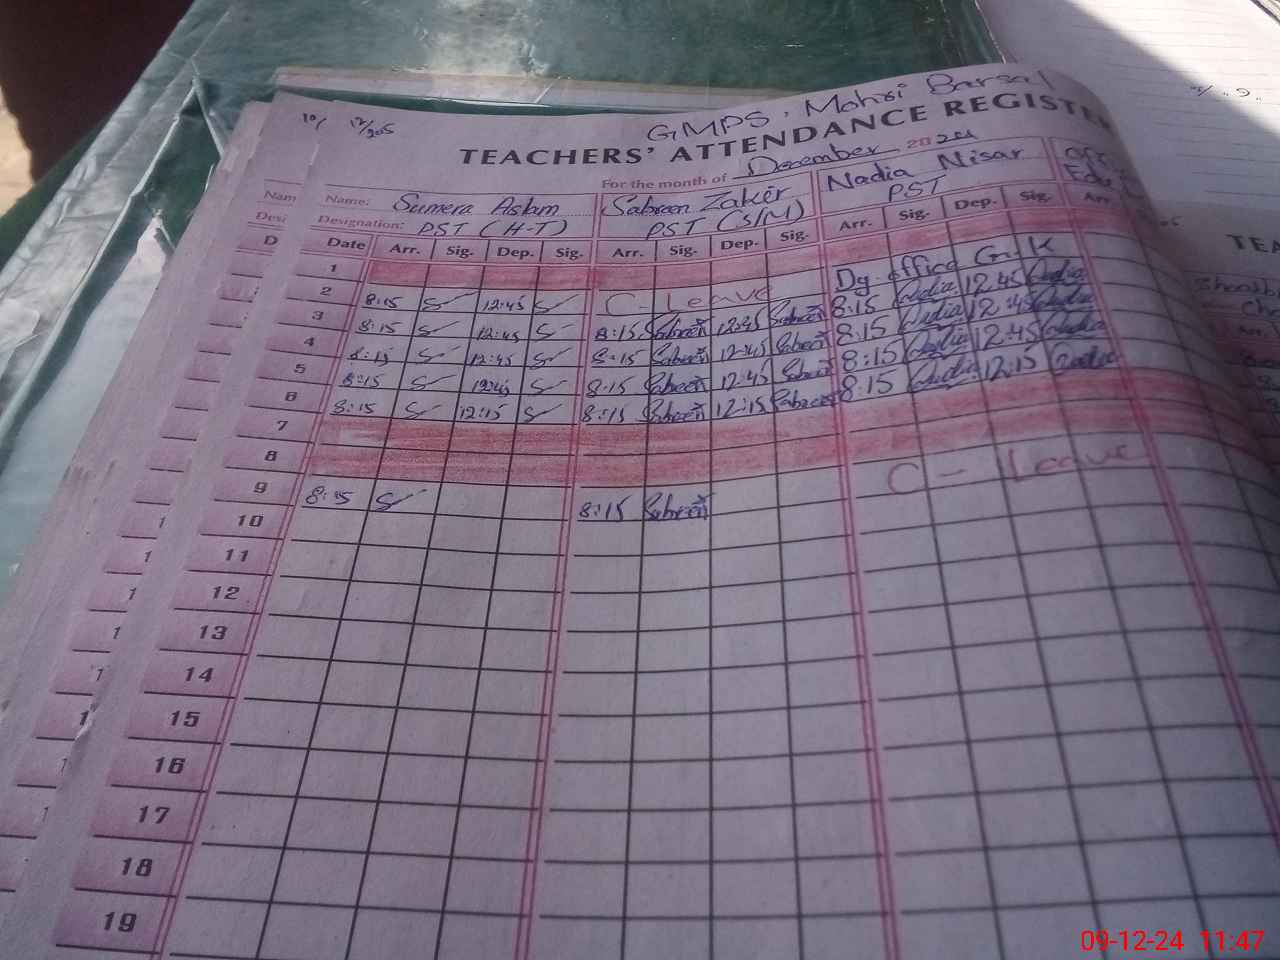 GMPS, Mohri Barsal
TEACHERS' ATTENDANCE REGISTE
For the month of December 2024
Name: Sumera Aslam Sabreen Zaker Nadia Nisar
Designation: PST (H-T) PST (S/M) PST
Date Arr. Sig. Dep. Sig. Arr. Sig. Dep. Sig. Arr. Sig. Dep. Sig. Arr.
1
2 8:15 S 12:45 S C- Leave Dy. office G.K
3 8:15 S 12:45 S 8:15 Sabreen 12:45 Sabreen 8:15 Nadia 12.45 Nadia
4 8:15 S 12:45 S 8:15 Sabreen 12:45 Sabreen 8.15 Nadia 12:45 Nadia
5 8:15 S 12:45 S 8:15 Sabreen 12:45 Sabreen 8:15 Nadia 12:45 Nadia
6 8:15 S 12:15 S 8:15 Sabreen 12:15 Sabreen 8:15 Nadia 12:15 Nadia
7
8
9 8:15 S 8:15 Sabreen C - Leave
10
11
12
13
14
15
16
17
18
19
09-12-24 11:47